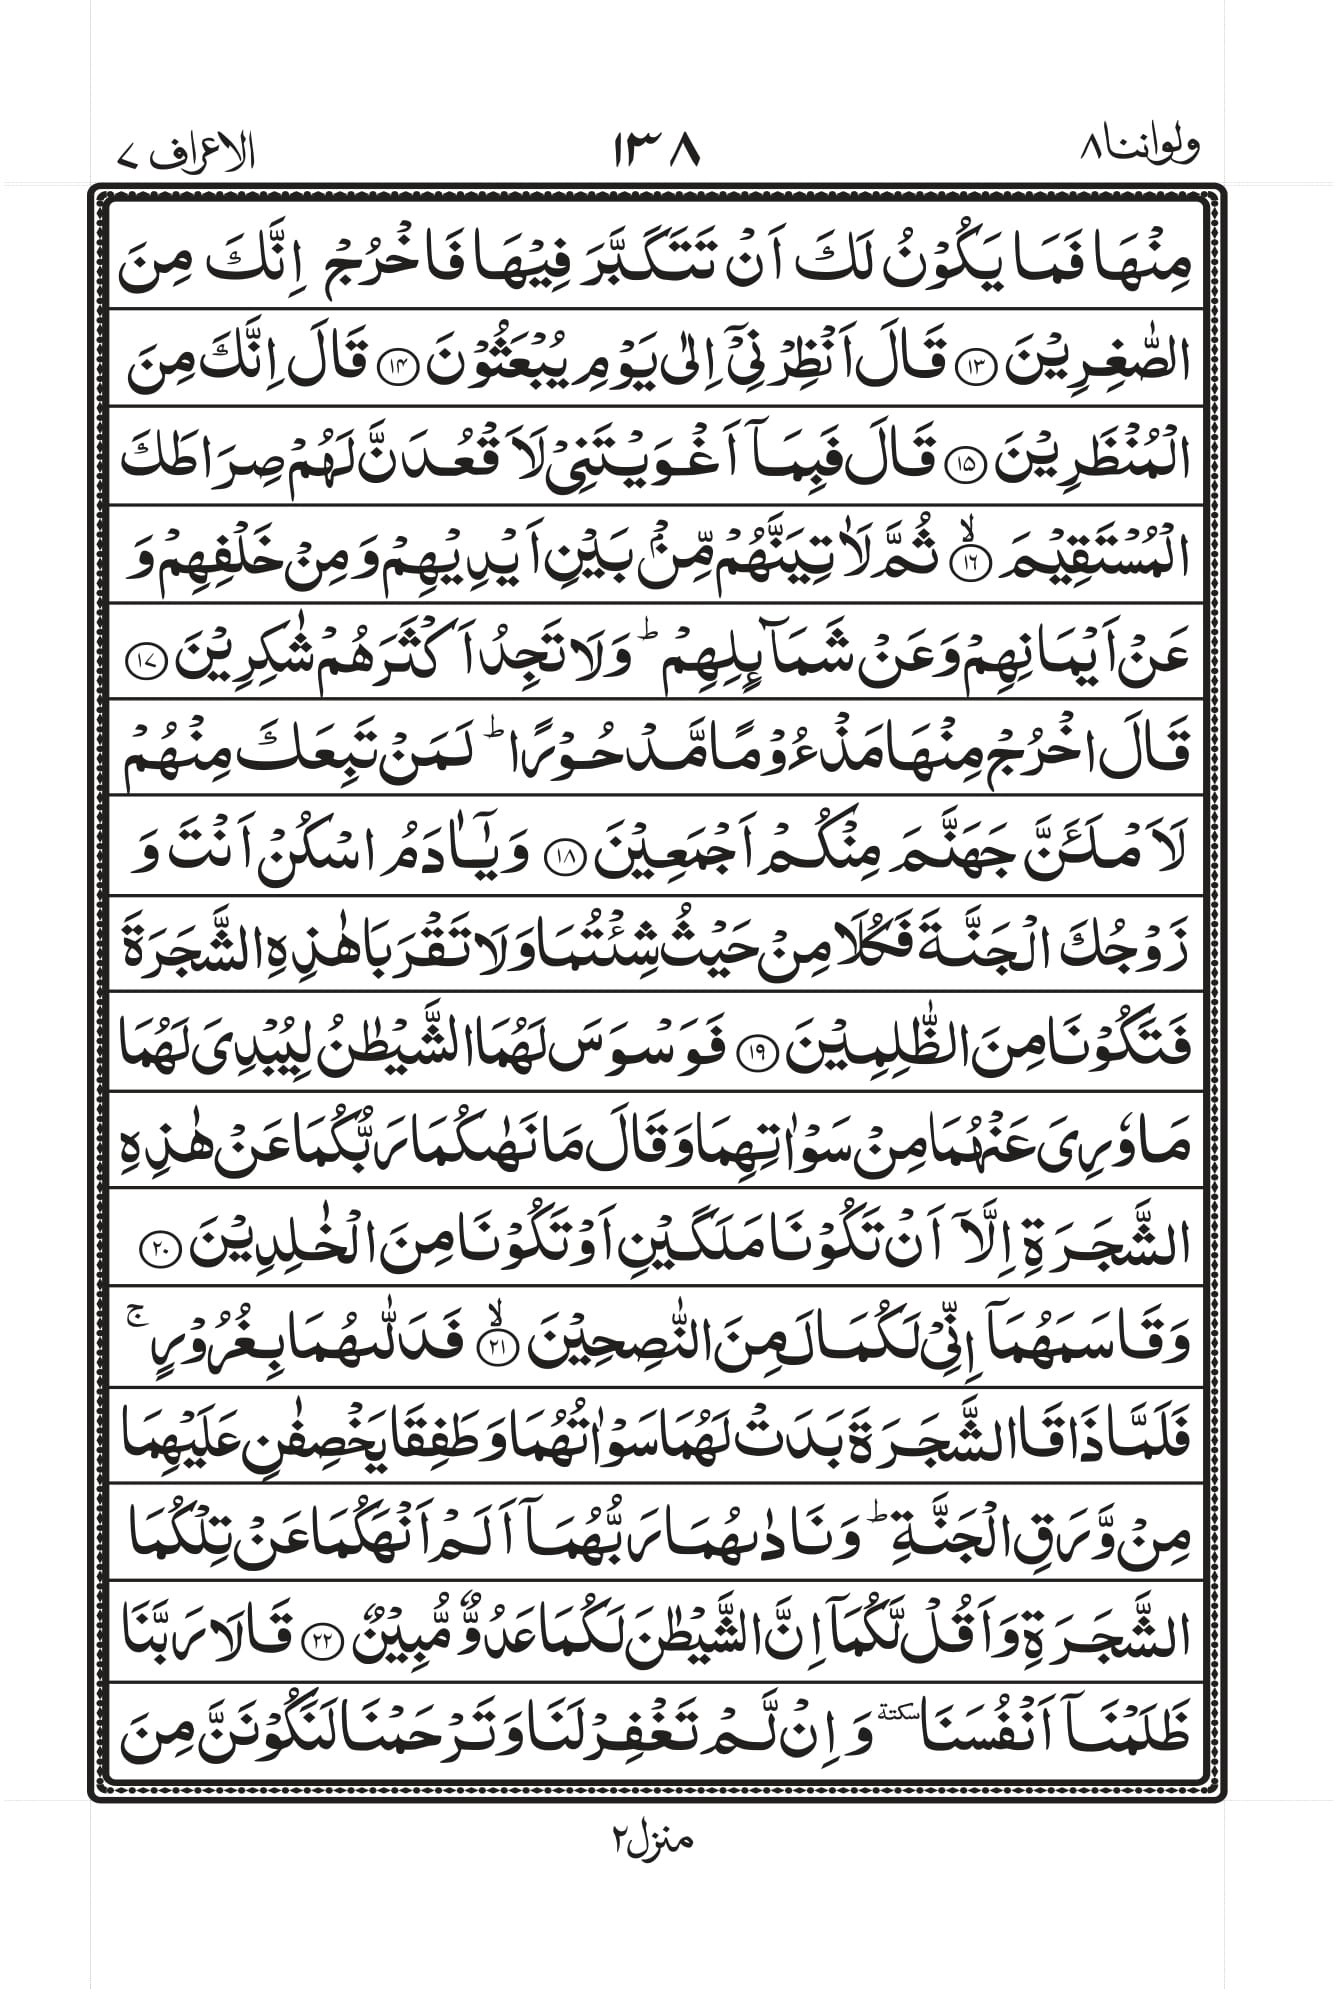 ولواننا ٨
١٣٨
الاعراف ٧
مِنْهَا فَمَا يَكُوْنُ لَكَ اَنْ تَتَكَبَّرَ فِيْهَا فَاخْرُجْ اِنَّكَ مِنَ
الصّٰغِرِيْنَ ﴿۱۳﴾ قَالَ اَنْظِرْنِيْۤ اِلٰى يَوْمِ يُبْعَثُوْنَ ﴿۱۴﴾ قَالَ اِنَّكَ مِنَ
الْمُنْظَرِيْنَ ﴿۱۵﴾ قَالَ فَبِمَاۤ اَغْوَيْتَنِيْ لَاَقْعُدَنَّ لَهُمْ صِرَاطَكَ
الْمُسْتَقِيْمَ ﴿۱۶﴾ۙ ثُمَّ لَاٰتِيَنَّهُمْ مِّنْۢ بَيْنِ اَيْدِيْهِمْ وَمِنْ خَلْفِهِمْ وَ
عَنْ اَيْمَانِهِمْ وَعَنْ شَمَآئِلِهِمْ ؕ وَلَا تَجِدُ اَكْثَرَهُمْ شٰكِرِيْنَ ﴿۱۷﴾
قَالَ اخْرُجْ مِنْهَا مَذْءُوْمًا مَّدْحُوْرًا ؕ لَمَنْ تَبِعَكَ مِنْهُمْ
لَاَمْلَـَٔنَّ جَهَنَّمَ مِنْكُمْ اَجْمَعِيْنَ ﴿۱۸﴾ وَيٰۤاٰدَمُ اسْكُنْ اَنْتَ وَ
زَوْجُكَ الْجَنَّةَ فَكُلَا مِنْ حَيْثُ شِئْتُمَا وَلَا تَقْرَبَا هٰذِهِ الشَّجَرَةَ
فَتَكُوْنَا مِنَ الظّٰلِمِيْنَ ﴿۱۹﴾ فَوَسْوَسَ لَهُمَا الشَّيْطٰنُ لِيُبْدِىَ لَهُمَا
مَا وٗرِىَ عَنْهُمَا مِنْ سَوْاٰتِهِمَا وَقَالَ مَا نَهٰىكُمَا رَبُّكُمَا عَنْ هٰذِهِ
الشَّجَرَةِ اِلَّاۤ اَنْ تَكُوْنَا مَلَكَيْنِ اَوْ تَكُوْنَا مِنَ الْخٰلِدِيْنَ ﴿۲۰﴾
وَقَاسَمَهُمَاۤ اِنِّيْ لَكُمَا لَمِنَ النّٰصِحِيْنَ ﴿۲۱﴾ۙ فَدَلّٰىهُمَا بِغُرُوْرٍ ۚ
فَلَمَّا ذَاقَا الشَّجَرَةَ بَدَتْ لَهُمَا سَوْاٰتُهُمَا وَطَفِقَا يَخْصِفٰنِ عَلَيْهِمَا
مِنْ وَّرَقِ الْجَنَّةِ ؕ وَنَادٰىهُمَا رَبُّهُمَاۤ اَلَمْ اَنْهَكُمَا عَنْ تِلْكُمَا
الشَّجَرَةِ وَاَقُلْ لَّكُمَاۤ اِنَّ الشَّيْطٰنَ لَكُمَا عَدُوٌّ مُّبِيْنٌ ﴿۲۲﴾ قَالَا رَبَّنَا
ظَلَمْنَاۤ اَنْفُسَنَا سكتة وَاِنْ لَّمْ تَغْفِرْ لَنَا وَتَرْحَمْنَا لَنَكُوْنَنَّ مِنَ
منزل ٢